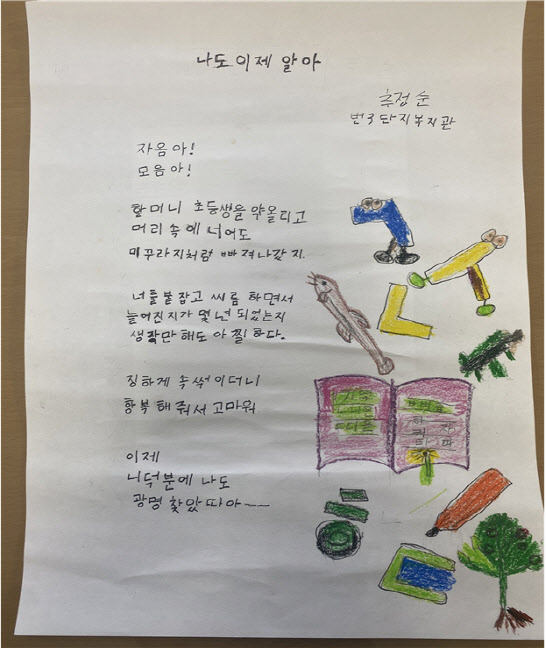 나도 이제 알아
추정순
번3단지복지관
자음아!
모음아!
할머니 초등생을 약올리고
머리 속에 넣어도
미꾸라지처럼 빠져나갔지.
너를 붙잡고 씨름 하면서
늘어진지가 몇 년 되었는지
생각만해도 아찔하다.
징하게 속썩이더니
항복해줘서 고마워
이제
니덕분에 나도
광명 찾았따아~~